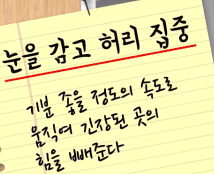 눈을 감고 허리 집중
기분 좋을 정도의 속도로
움직여 긴장된 곳의
힘을 빼준다